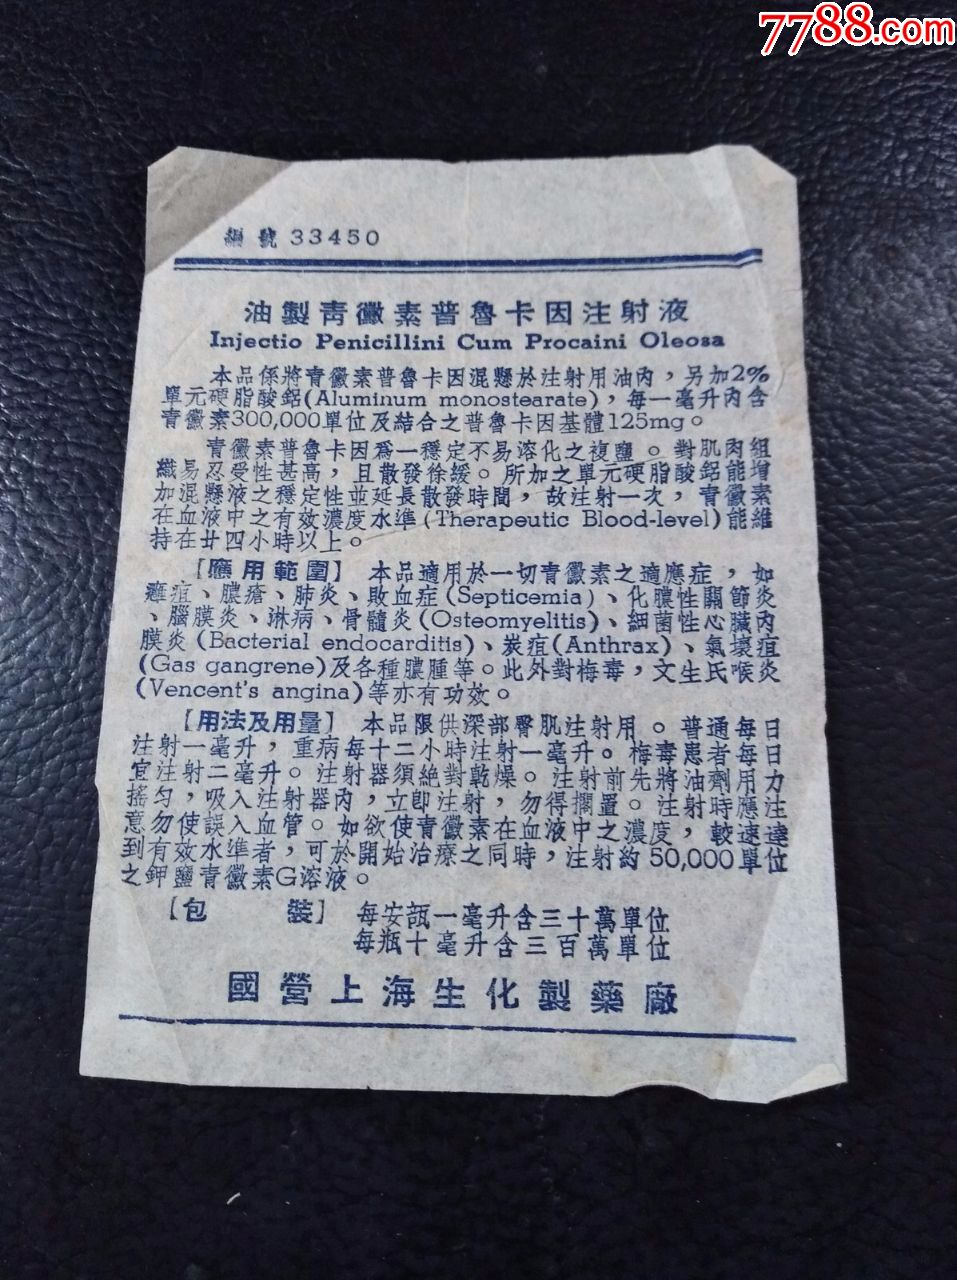 7788.com
編號 33450
油製靑黴素普魯卡因注射液
Injectio Penicillini Cum Procaini Oleosa
本品係將靑黴素普魯卡因混懸於注射用油內，另加2%
單元硬脂酸鋁(Aluminum monostearate)，每一毫升內含
靑黴素300,000單位及結合之普魯卡因基體125mg。
靑黴素普魯卡因爲一穩定不易溶化之複鹽。對肌肉組
織易忍受性甚高，且散發徐緩。所加之單元硬脂酸鋁能增
加混懸液之穩定性並延長散發時間，故注射一次，靑黴素
在血液中之有效濃度水準(Therapeutic Blood-level)能維
持在廿四小時以上。
【應用範圍】 本品適用於一切靑黴素之適應症，如
癰疽、膿瘡、肺炎、敗血症(Septicemia)、化膿性關節炎
、腦膜炎、淋病、骨髓炎(Osteomyelitis)、細菌性心臟內
膜炎(Bacterial endocarditis)、炭疽(Anthrax)、氣壞疽
(Gas gangrene)及各種膿腫等。此外對梅毒，文生氏喉炎
(Vencent's angina)等亦有功效。
【用法及用量】 本品限供深部臀肌注射用。普通每日
注射一毫升，重病每十二小時注射一毫升。梅毒患者每日
宜注射二毫升。注射器須絕對乾燥。注射前先將油劑用力
搖勻，吸入注射器內，立即注射，勿得擱置。注射時應注
意勿使誤入血管。如欲使靑黴素在血液中之濃度，較速達
到有效水準者，可於開始治療之同時，注射約50,000單位
之鉀鹽靑黴素G溶液。
【包 裝】 每安瓿一毫升含三十萬單位
每瓶十毫升含三百萬單位
國營上海生化製藥廠